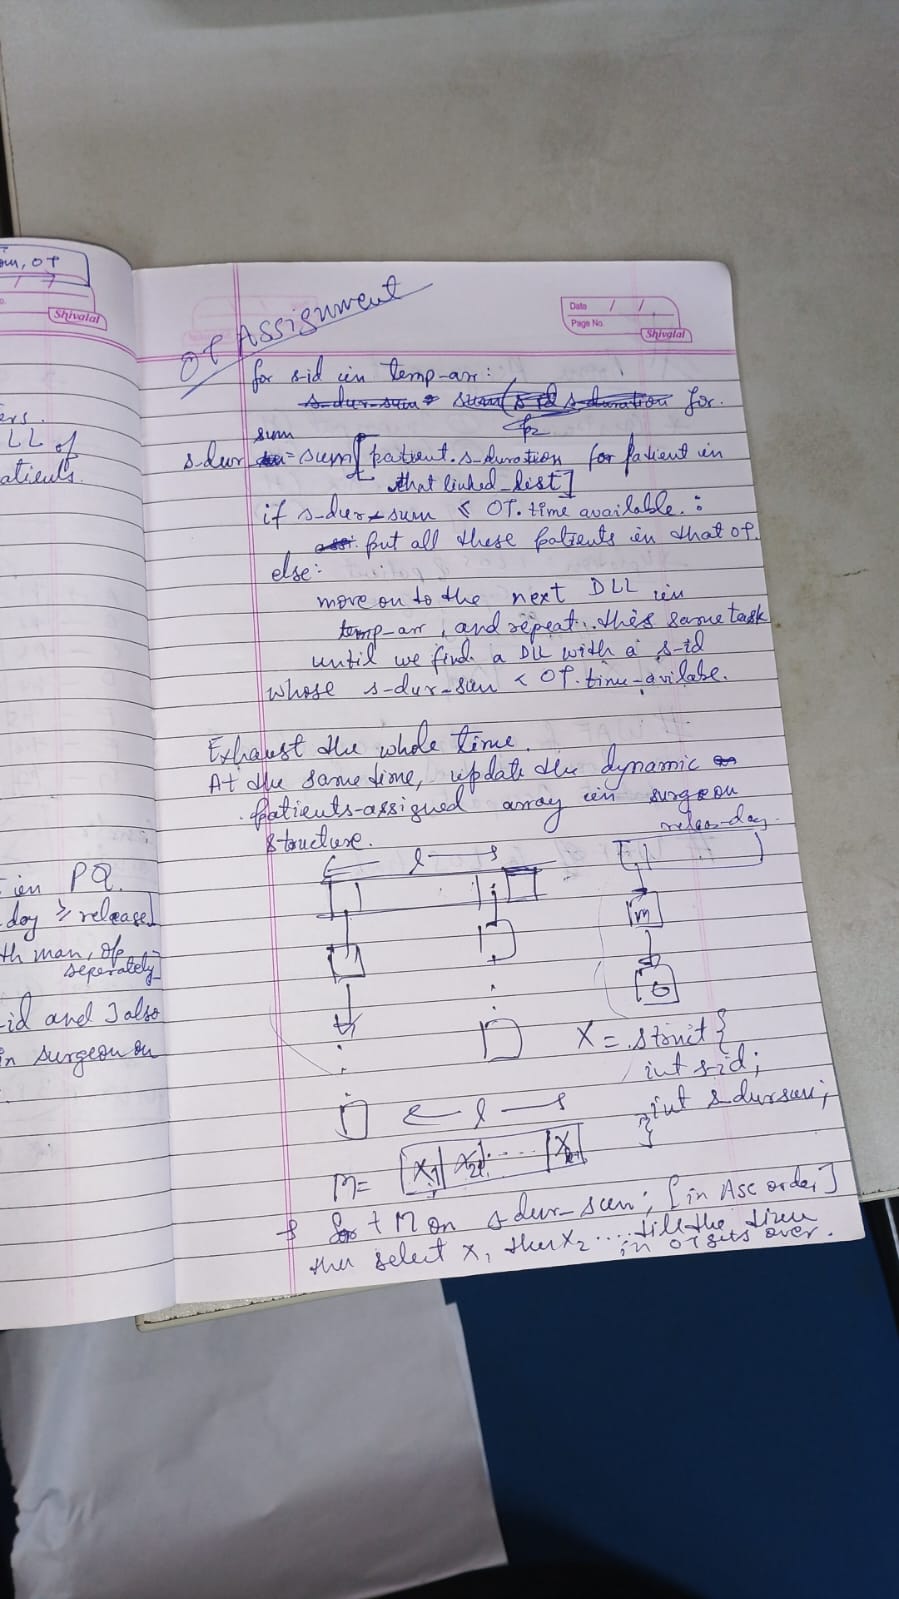 OT
Shivalal
ers.
LL of
atients.
in PQ.
day ≥ release
th man, op
seperately
-id and I also
in surgeon on
Date / /
Page No.
Shivalal
OT Assignment
for s-id in temp-arr:
s-dur-sum = sum(s-id s-duration for
s-dur sum = sum[patient.s-duration for patient in
that linked_list]
if s-dur-sum < OT.time available :
put all these patients in that OT.
else:
move on to the next DLL in
temp-arr, and repeat this same task
until we find a DLL with a s-id
whose s-dur-sum < OT.time-avilabe.
Exhaust the whole time.
At the same time, update the dynamic
patients-assigned array in surgeon
structure.
l
m
X = struct {
int s-id;
int s-dursum;
}
l
M = X1 X2 ....
M on s-dur-sum; [in Asc order]
then select X1 then X2 .... till the time
in OT gets over.